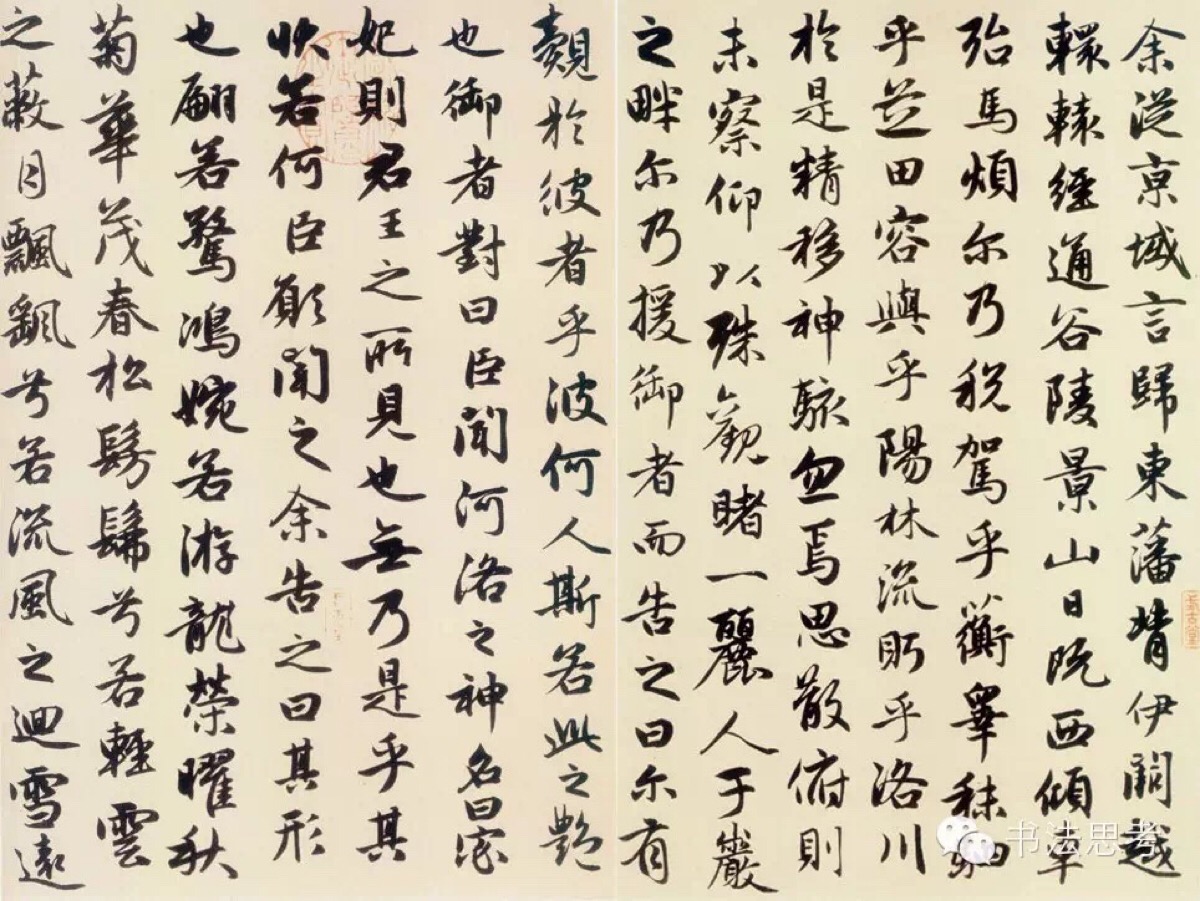 余從京域言歸東藩背伊闕越
轘轅經通谷陵景山日既西傾車
殆馬煩尔乃税駕乎蘅皋秣駟
乎芝田容與乎陽林流眄乎洛川
於是精移神駭忽焉思散俯則
未察仰以殊觀睹一麗人于巖
之畔尔乃援御者而告之曰尔有
覿於彼者乎彼何人斯若此之艷
也御者對曰臣聞河洛之神名曰宓
妃則君王之所見也無乃是乎其
状若何臣願聞之余告之曰其形
也翩若驚鴻婉若游龍榮曜秋
菊華茂春松髣髴兮若輕雲
之蔽月飄飖兮若流風之迴雪遠
书法思考